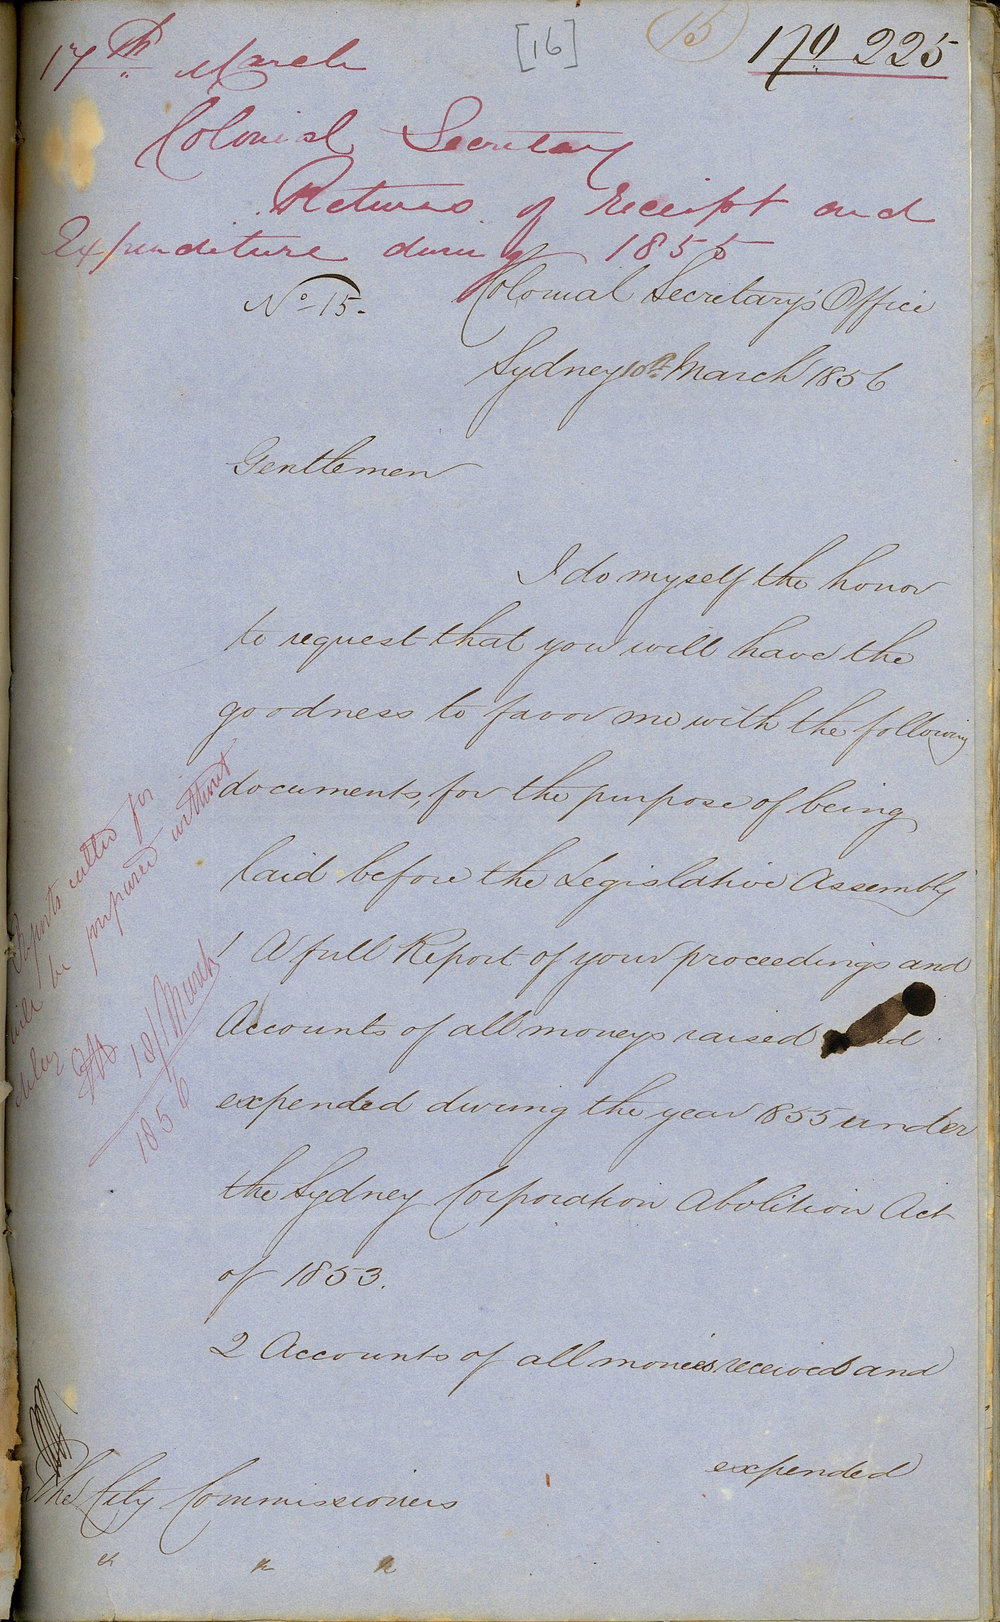 [16]
15
170 225
17th March
Colonial Secretary
Returns of receipt and
Expenditure during 1855
No 15.
Colonial Secretary's Office
Sydney 10th March 1856
Gentlemen
I do myself the honor
to request that you will have the
goodness to favor me with the following
documents, for the purpose of being
laid before the Legislative Assembly
1 A full Report of your proceedings and
Accounts of all moneys raised and
expended during the year 1855 under
the Sydney Corporation Abolition Act
of 1853.
2 Accounts of all monies received and
expended
The City Commissioners
Reports called for
will be prepared without
delay
18/March
1856